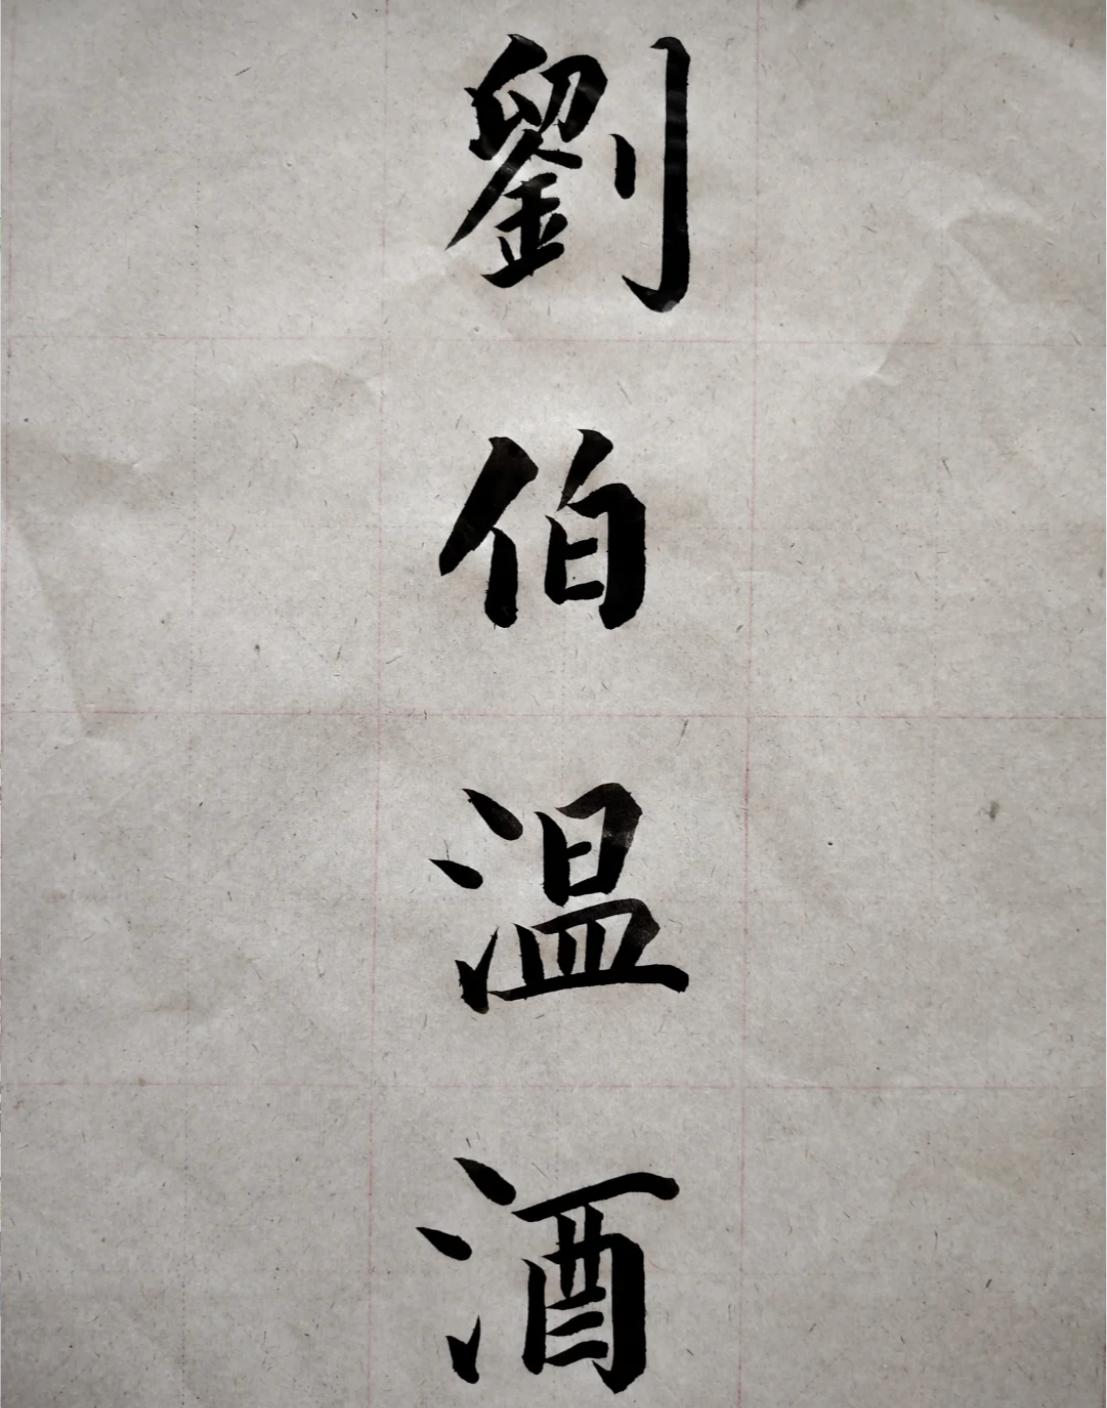 劉伯温酒